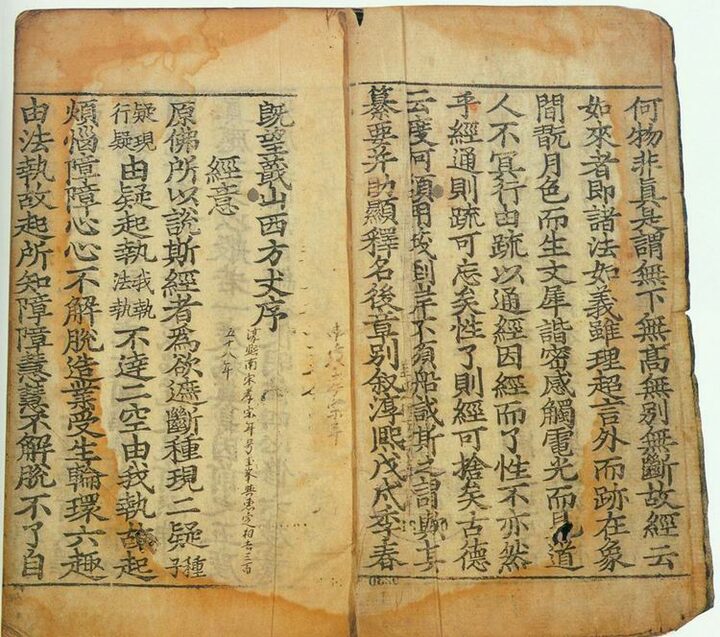 何物非眞是謂無下無髙無别無斷故經云
如來者即諸法如義雖理超言外而跡在象
間翫月色而生文犀諧密感觸電光而見道
人不冥行由疏以通經因經而了性不亦然
乎經通則疏可忘矣性了則經可捨矣古德
云度河須用筏到岸不須船誠斯之謂與其
纂要并助顯釋名後章别敘淳熙戊戌季春
既望蕺山西方丈序
淳熙南宋孝宗年号至相去三百
五十八年
經意
原佛所以說斯經者為欲遮斷種現二疑種子
疑現行疑由疑起執我執法執不達二空由我執故起
煩惱障障心心不解脫造業受生輪環六趣
由法執故起所知障障慧慧不解脫不了自